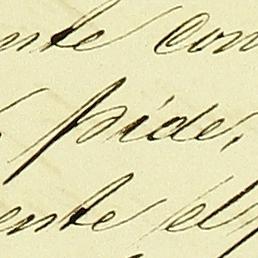 nte con
pide,
ente el